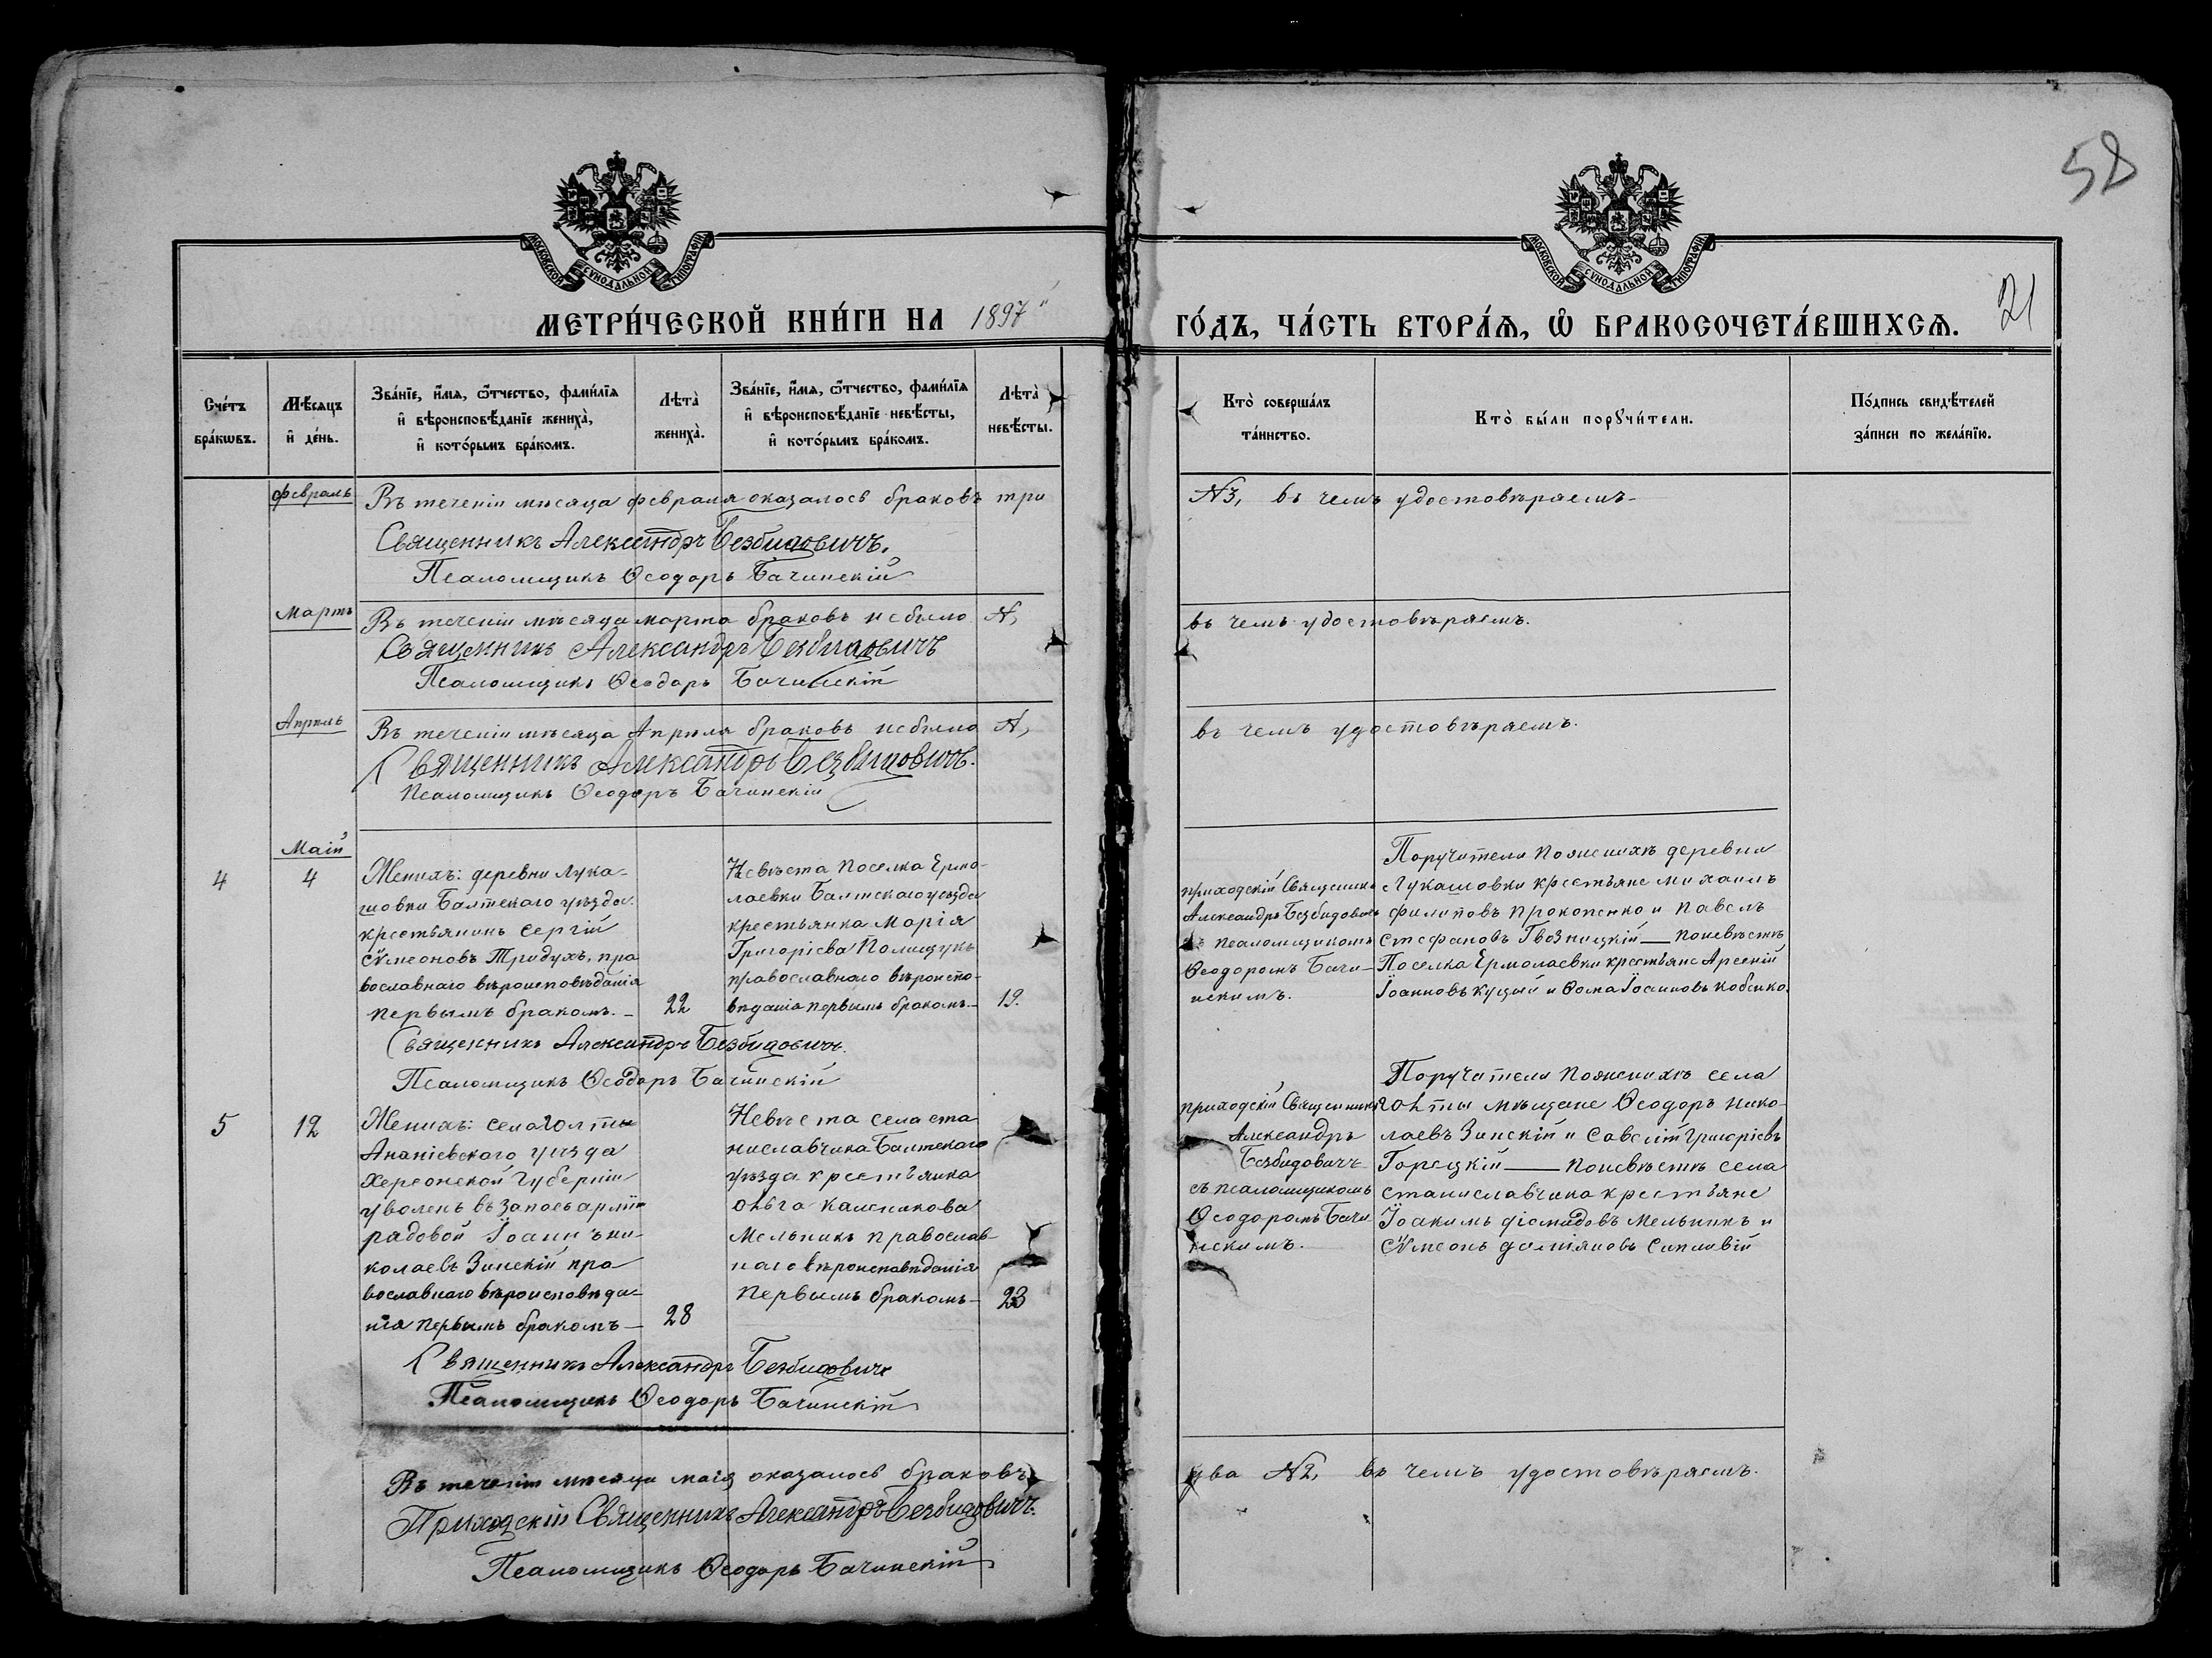 58
21
МОСКОВСКОЙ СѴНОДАЛЬНОЙ ТИПОГРАФІИ
МОСКОВСКОЙ СѴНОДАЛЬНОЙ ТИПОГРАФІИ
МЕТРИ́ЧЕСКОЙ КНИ́ГИ НА 1897 й
ГО́ДЪ, ЧА́СТЬ ВТОРА́Ѧ, Ѽ БРАКОСОЧЕТА́ВШИХСѦ.
Сче́тъ
бра́кѡвъ.
Мѣ́сяцъ
и҆ де́нь.
Зва́нїе, и҆́мя, ѻ҆́тчество, фами́лїя
и҆ вѣроисповѣ́данїе жениха̀,
и҆ кото́рымъ бра́комъ.
Лѣта̀
жениха̀.
Зва́нїе, и҆́мя, ѻ҆́тчество, фами́лїя
и҆ вѣроисповѣ́данїе невѣ́сты,
и҆ кото́рымъ бра́комъ.
Лѣта̀
невѣ́сты.
Кто̀ соверша́лъ
та́инство.
Кто̀ бы́ли порꙋчи́тели.
По́дпись свидѣ́телей
за́писи по жела́нїю.
Февраль
Въ теченіи мѣсяца февраля оказалось браковъ три
N3, въ чемъ удостовѣряемъ
Священникъ Александръ Безбидовичъ.
Псаломщикъ Ѳеодоръ Бачинскій
Мартъ
Въ теченіи мѣсяца марта браковъ небыло N,
въ чемъ удостовѣряемъ.
Священникъ Александръ Безбидовичъ
Псаломщикъ Ѳеодоръ Бачинскій
Апрѣль
Въ теченіи мѣсяца Апрѣля браковъ небыло N,
въ чемъ удостовѣряемъ.
Священникъ Александръ Безбидовичъ.
Псаломщикъ Ѳеодоръ Бачинскій
Маій
4
4
Женихъ: деревни Лука-
шовки Балтскаго уѣзда
крестьянинъ Сергій
Сѵмеоновъ Тридухъ, пра
вославнаго вѣроисповѣданія
первымъ бракомъ. –
22
Невѣста Поселка Ермо-
лаевки Балтскаго уѣзда
крестьянка Марія
Григоріева Полищукъ
православнаго вѣроиспо-
вѣданія первымъ бракомъ. –
19.
приходскій Священникъ
Александръ Безбидовичъ
съ псаломщикомъ
Ѳеодоромъ Бачи-
нскимъ.
Поручители поженихѣ деревни
Лукашовки крестьяне Михаилъ
Филиповъ Прокопенко и Павелъ
Стефановъ Гвозницкій — поневѣстѣ
Поселка Ермолаевки крестьяне Арсеній
Іоанновъ Куцый и Ѳома Іоанновъ Кобенко.
Священникъ Александръ Безбидовичъ.
Псаломщикъ Ѳеодоръ Бачинскій
5
12
Женихъ: села Голты
Ананіевскаго уѣзда
Херсонской Губерніи
уволенъ въ запасъ арміи
рядовой Іоаннъ Ни-
колаевъ Зинскій пра
вославнаго вѣроисповѣда-
нія первымъ бракомъ –
28
Невѣста села Ста
ниславчика Балтскаго
уѣзда крестьянка
Ольга Калениковa
Мельникъ православ-
наго вѣроисповѣданія
первымъ бракомъ –
23
приходскій Священникъ
Александръ
Безбидовичъ
съ псаломщикомъ
Ѳеодоромъ Бачи
нскимъ.
Поручители поженихѣ села
Голты мѣщане Ѳеодоръ Нико-
лаевъ Зинскій и Савелій Григоріевъ
Горецкій — поневѣстѣ села
Станиславчика крестьяне
Іоакимъ Діомидовъ Мельникъ и
Сѵмеонъ Даміяновъ Сипливій
Священникъ Александръ Безбидовичъ
Псаломщикъ Ѳеодоръ Бачинскій
Въ теченіи мѣсяца маія оказалось браковъ
два N2, въ чемъ удостовѣряемъ.
Приходскій Священникъ Александръ Безбидовичъ.
Псаломщикъ Ѳеодоръ Бачинскій